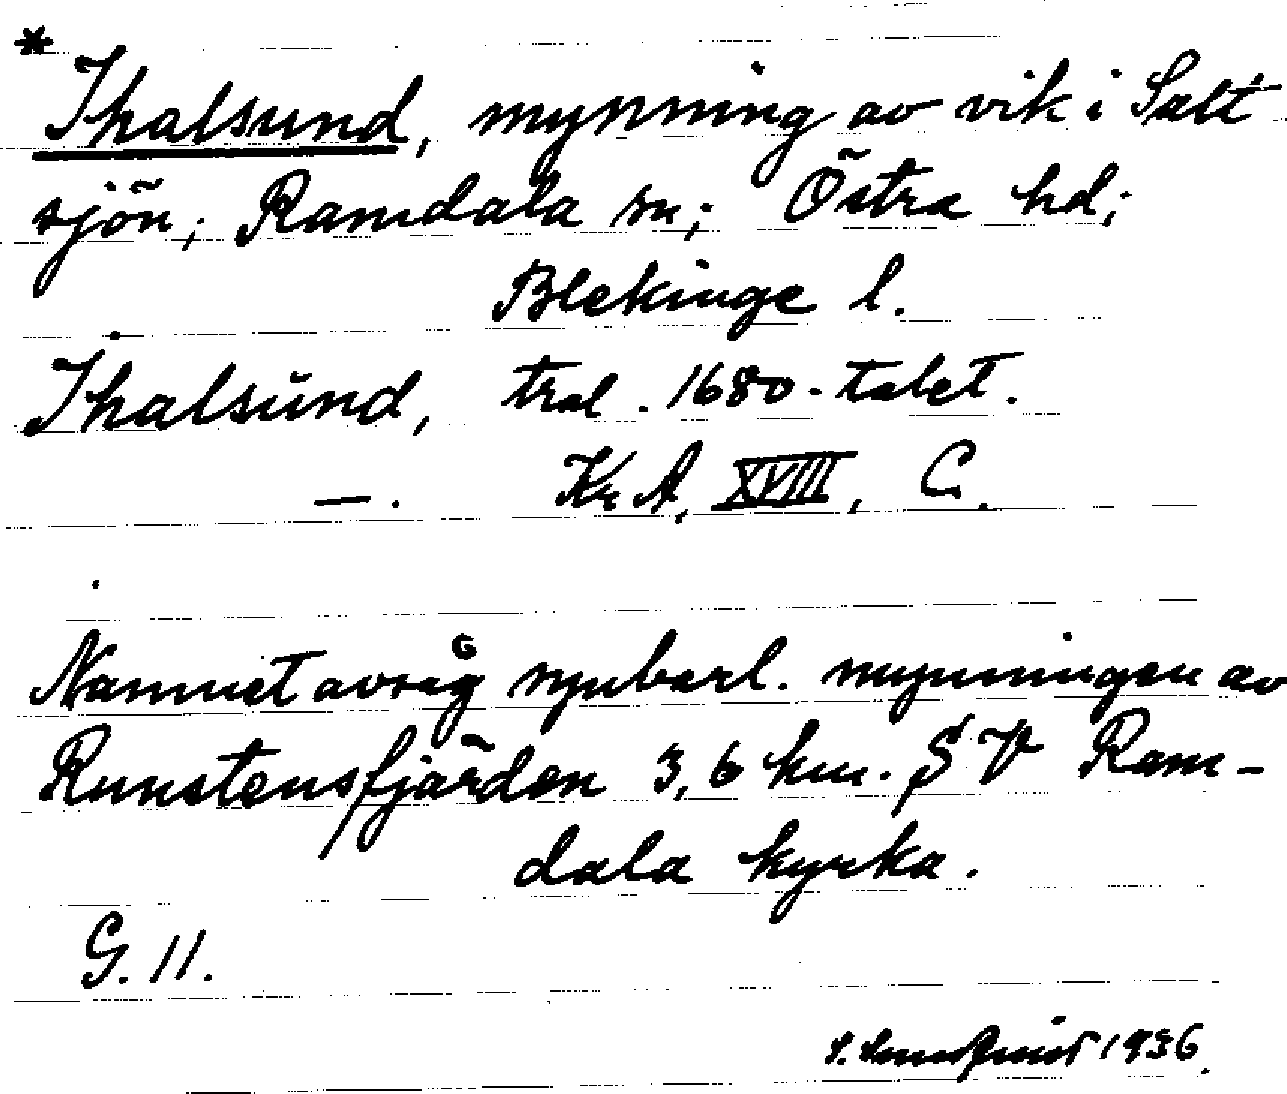 * Ihalsund, mynning av vik i Salt
sjön; Ramdala sn; Östra hd;
Blekinge l.
Ihalsund, trol. 1680-talet.
—. Kr A, XVIII, C.
Namnet avsåg uppenbarl. mynningen av
Runstensfjärden 3,6 km. S V Ram-
dala kyrka.
G. 11.
S. 1936.